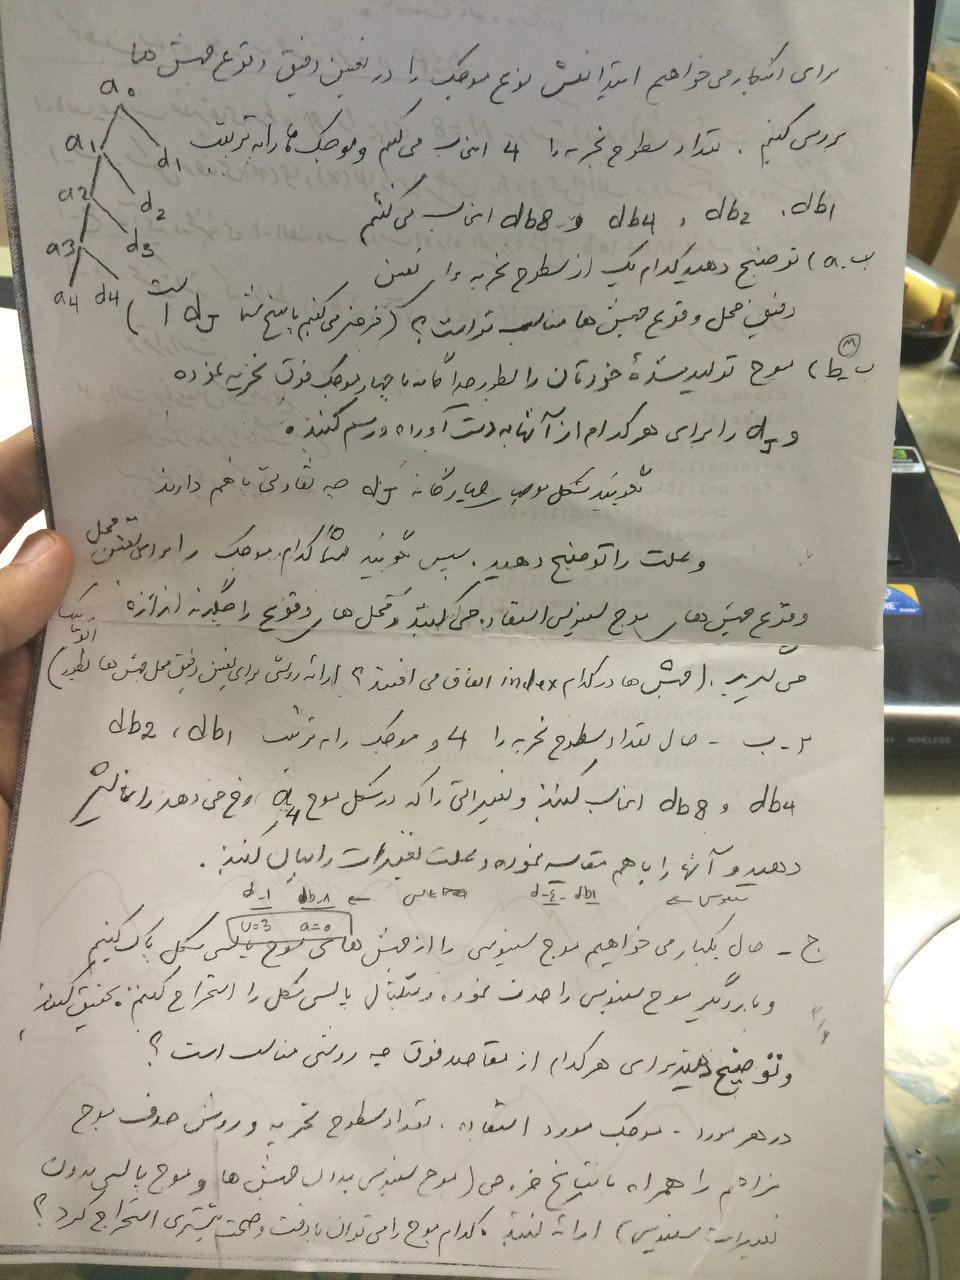 برای اینکار می‌خواهیم ابتدا نقش نوع موجک را در تعیین دقیق وقوع جهش ها
بررسی کنیم . تعداد سطوح تجزیه را 4 انتخاب می کنیم و موجک ها را به ترتیب
db1 ، db2 ، db4 و db8 انتخاب می کنیم
a0
a1 d1
a2 d2
a3 d3
a4 d4
ب-a) توضیح دهید کدام یک از سطوح تجزیه برای تعیین
دقیق محل وقوع جهش ها مناسب تر است ؟ (فرض می کنیم پاسخ شما dj است)
ب-b) موج تولید شدهٔ خودتان را بطور جداگانه با چهار موجک فوق تجزیه نموده
و dj را برای هر کدام از آنها به دست آورده و رسم کنید .
بگویید شکل موج چهارگانه dj چه تفاوتی با هم دارند
و علت را توضیح دهید . سپس بگویید شما کدام موجک را برای تعیین محل
وقوع جهش های موج سینوسی استفاده می کنید و محل های وقوع را چگونه اندازه
می گیرید . (جهش ها در کدام index اتفاق می افتد ؟ ارائه روش برای تعیین دقیق محل جهش ها بطور
۲-ب - حال تعداد سطوح تجزیه را 4 و موجک را به ترتیب db1 ، db2
db4 و db8 انتخاب کنید و تغییراتی را که در شکل موج a4 رخ می دهد را نمایش
دهید و آنها را با هم مقایسه نموده و علت تغییرات را بیان کنید .
سینوس ← db1 d-٤ ← db-۸ d-۱
U=3 a=0
ج - حال یکبار می خواهیم موج سینوسی را از جهش های موج پالسی شکل پاک کنیم
و بار دیگر موج سینوسی را حذف نموده و سیگنال پالسی شکل را استخراج کنیم . تحقیق کنید
و توضیح دهید برای هر کدام از مقاصد فوق چه روشی مناسب است ؟
در هر مورد - موجک مورد استفاده ، تعداد سطوح تجزیه و روش حذف موج
مزاحم را همراه با نتایج خروجی (موج سینوسی بدون جهش ها و موج پالسی بدون
تغییرات سینوسی) ارائه کنید . کدام موج را می توان با دقت و صحت بیشتری استخراج کرد ؟